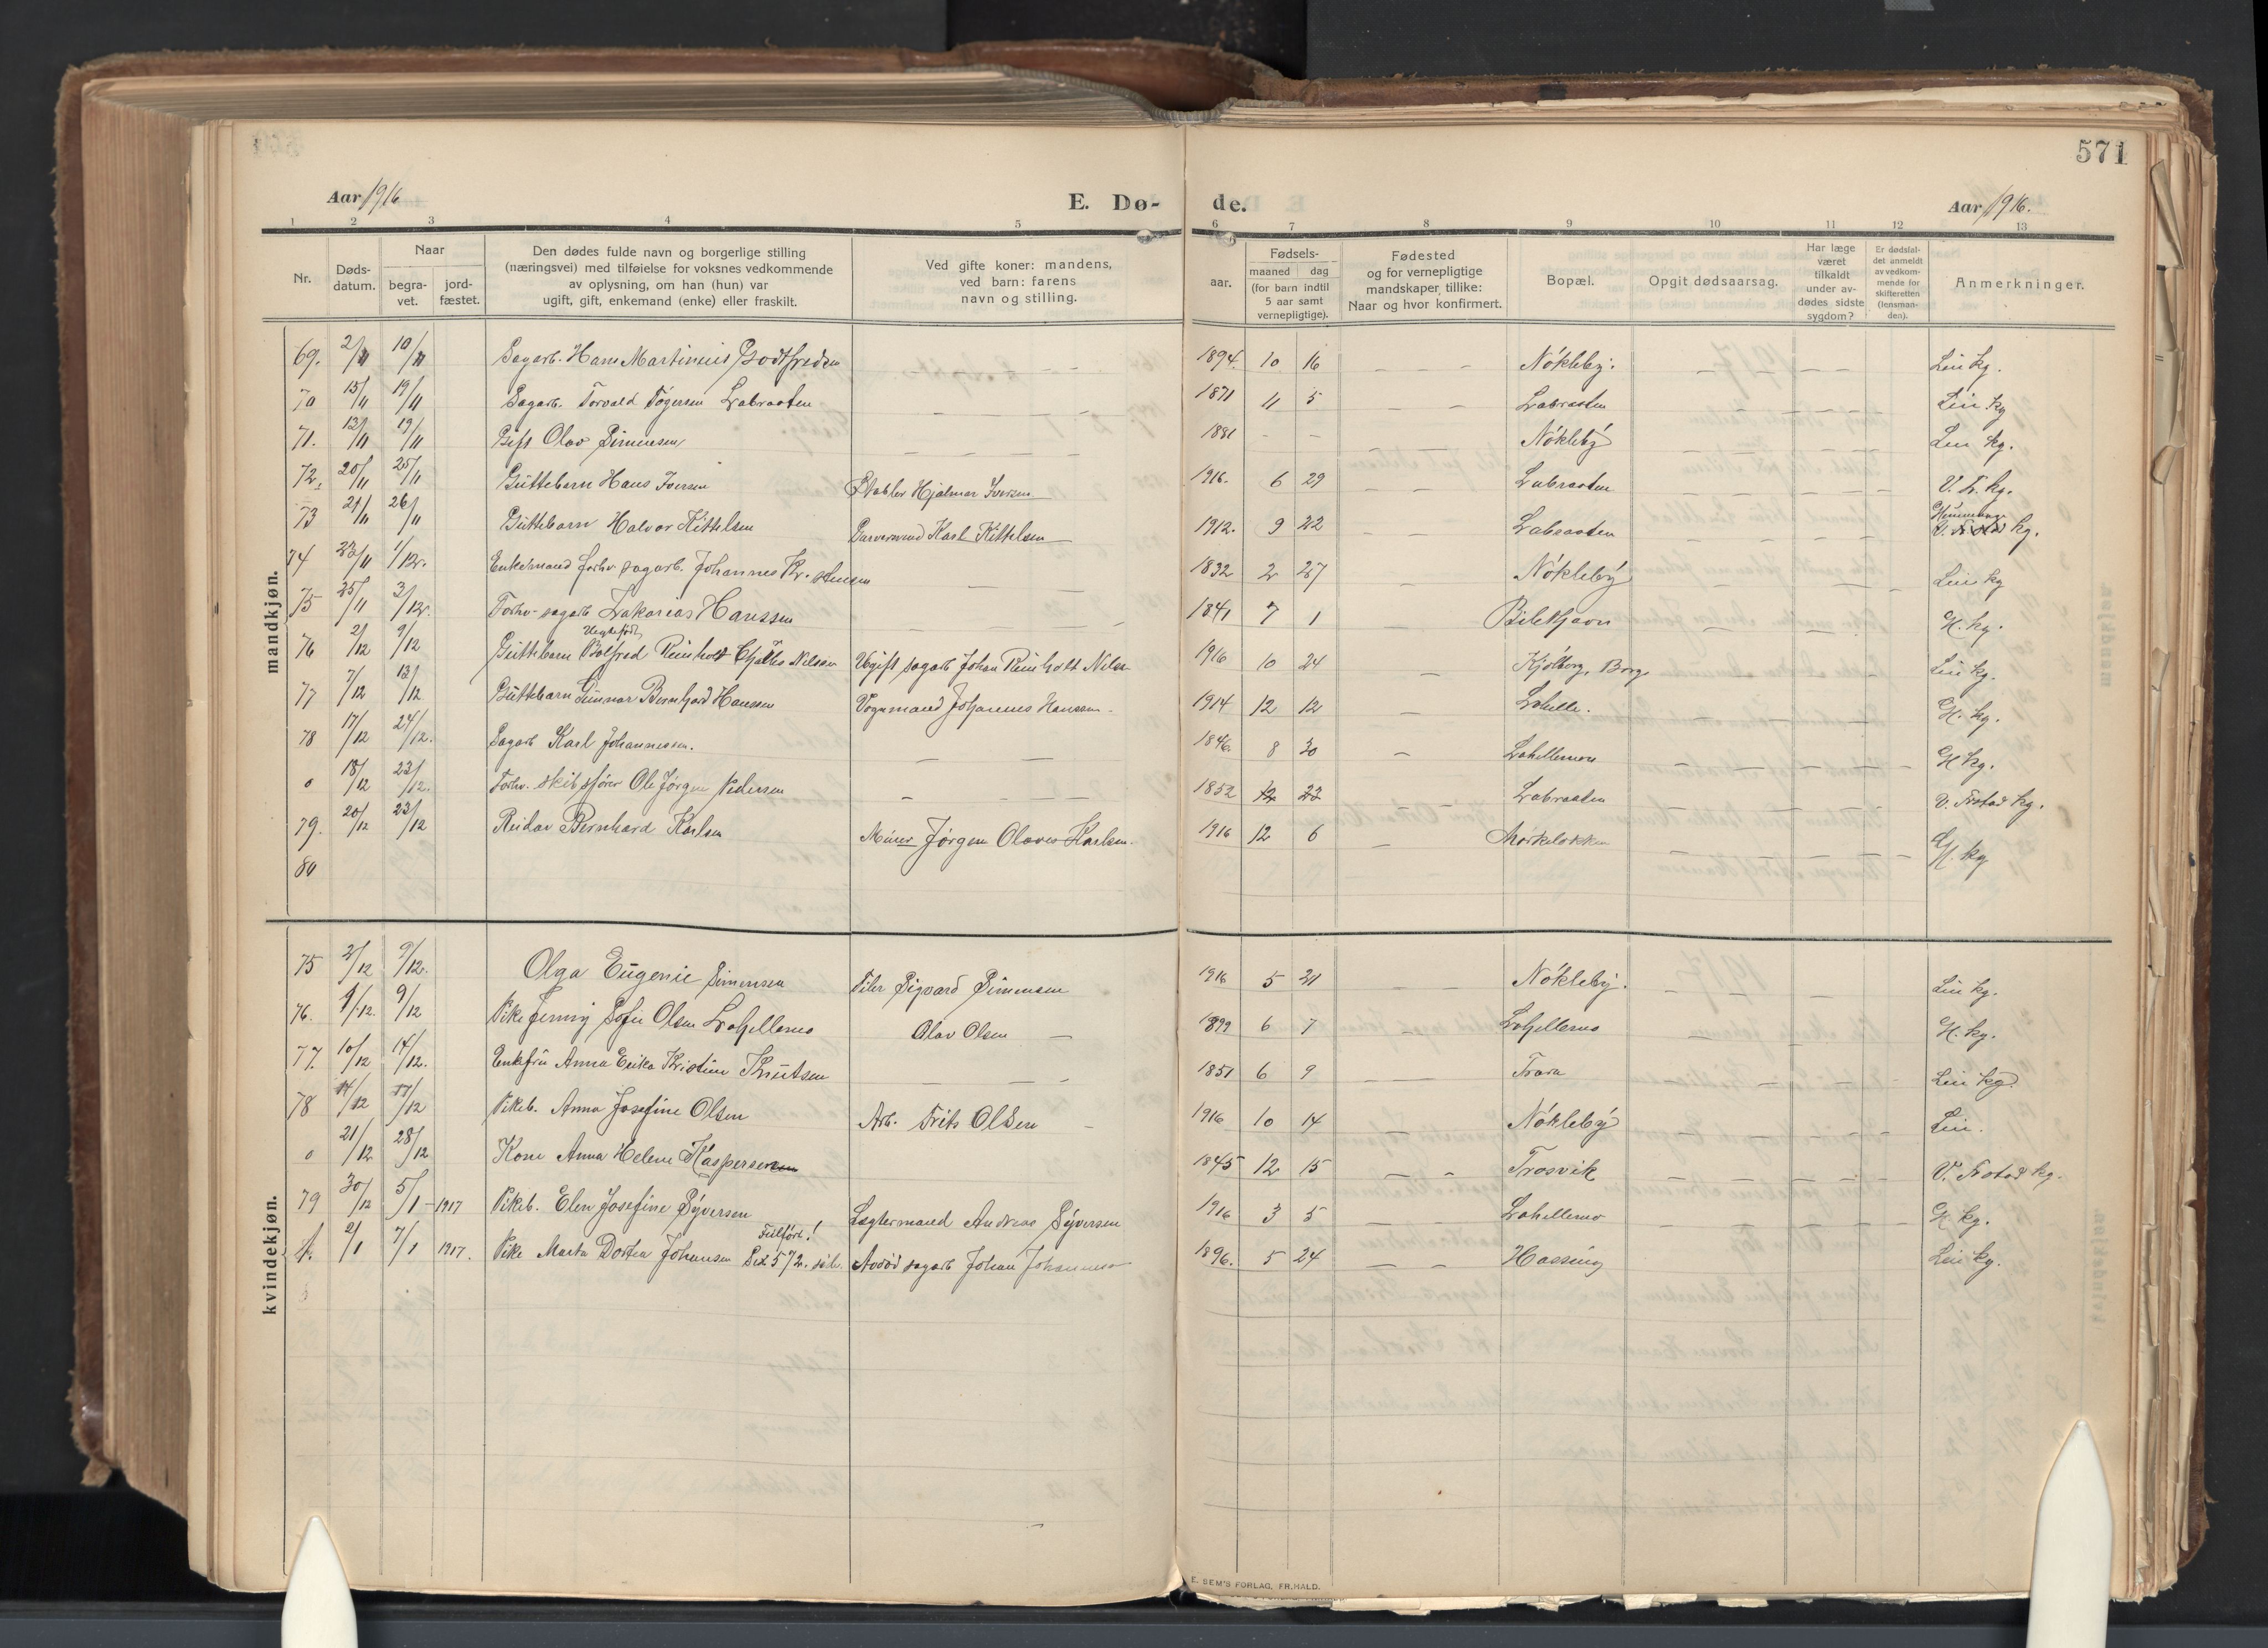 571
Aar 1916
E. Dø-
de.
Aar 1916.
1 2 3 4 5 6 7 8 9 10 11 12 13
Nr.
Døds-
datum.
Naar
begra-
vet.
jord-
fæstet.
Den dødes fulde navn og borgerlige stilling
(næringsvei) med tilføielse for voksnes vedkommende
av oplysning, om han (hun) var
ugift, gift, enkemand (enke) eller fraskilt.
Ved gifte koner: mandens,
ved barn: farens
navn og stilling.
aar.
Fødsels-
maaned dag
(for barn indtil
5 aar samt
vernepligtige).
Fødested
og for vernepligtige
mandskaper, tillike:
Naar og hvor konfirmert.
Bopæl.
Opgit dødsaarsag.
Har læge
været
tilkaldt
under av-
dødes sidste
sygdom?
Er dødsfal-
det anmeldt
av vedkom-
mende for
skifteretten
(lensman-
den).
Anmerkninger.
mandkjøn.
69. 2/11 10/11 Sagarb. Hans Martinius Godtfredsen — — 1894. 10 16 — — — Nökleby. — — — — Lin kg.
70 15/11 19/11 Sagarb. Torvald Tögersen Labraaten — — — 1871 11 5 — — Labraaten — — — Lin kg
71. 12/11 19/11 Gift Olav Simensen — — — 1881 - - Nökleby — — — Lin kg.
72. 20/11 25/11 Guttebarn Hans Iversen Stabler Hjalmar Iversen 1916. 6 29 — — Labraaten — — — V. Fr. kg.
73 21/11 26/11 Guttebarn Halvor Kittelsen Garversvend Karl Kittelsen 1912. 9 22 — — Labraaten — — — kg.
74 22/11 1/12. Enkemand forhv. sagarb. Johannes Kr. stensen — — 1832 2 27 — Nökleby — — — Lin kg
75 25/11 3/12. Forhv. sagarb Zakarias Hanssen — — — 1841 7 1 — — — — G. kg.
76 2/12 9/12 Uegtefödt
Guttebarn Bolfred Reinholt Charles Nilsen Ugift sagarb Johan Reinholt Nilsen 1916 10 24 — Kjölberg, Borg — — — Lin kg.
77 7/12 13/12 Guttebarn Gunnar Bernhard Hanssen Vognmand Johannes Hanssen 1914 12 12 — Lahelle. — — — G. kg.
78 17/12 24/12. Sagarb Karl Johannessen. — — 1846. 8 30 — Lahellemoen — — — G kg.
0 18/12 23/12. Forhv. skibsfører Ole Jørgen Pedersen — — — 1852 12 23 Labraaten — — — V. Frstad kg.
79. 20/12 23/12 Reidar Bernhard Karlsen Murer Jörgen Olaves Karlsen. 1916 12 6 — Mörkeløkken — — — G. kg
80
kvindekjøn.
75 3/12 9/12. Olga Eugenie Simensen Filer Sigvard Simensen 1916 5 21 Nökleby. — — — Lin kg.
76. 4/12. 9/12 Pike Jenny Sofie Olsen Lahellemo Olav Olsen — 1899 6 7 — Lahellemo — — — G. kg.
77. 10/12 14/12. Enkefru Anna Erika Kristine Knutsen — — — 1851 6 9 — — Trara — — — Lin kg.
78 14/12 17/12 Pikeb. Anna Josefine Olsen Arb. Frits Olsen 1916 10 14 Nökleby — — — Lin.
0 21/12 28/12 Kone Anna Helene Kaspersen 1845 12 15 — — Trosvik — — — V. Frstad kg.
79 30/12 5/1 - 1917 Pikeb. Elen Josefine Syversen Lægtermand Andreas Syversen 1916 3 5 — Lahellemo — — — G. kg.
2/1 7/1 1917. Pike Marta Dortea Johansen Fulført! Se 572. Avdöd sagarb Johan Johannesen 1896. 5 24 — — Hassing Lin kg.
E. SEM'S FORLAG, FR.HALD.